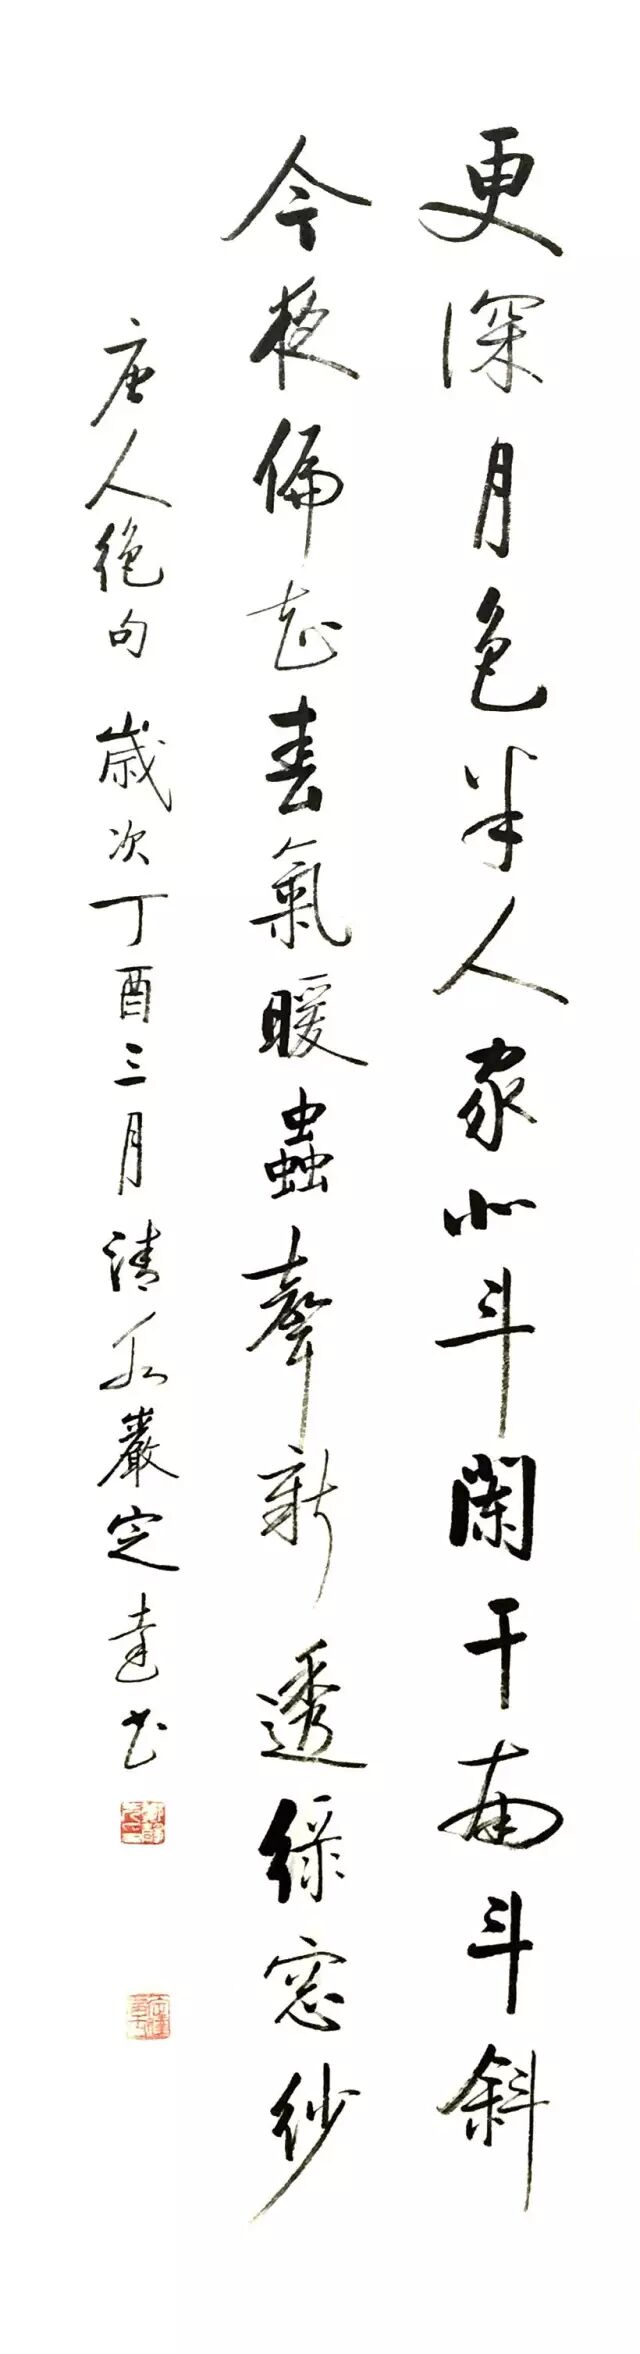 更深月色半人家北斗闌干南斗斜
今夜偏知春氣暖蟲聲新透綠窓紗
唐人絕句 歲次丁酉三月清水巖定達书